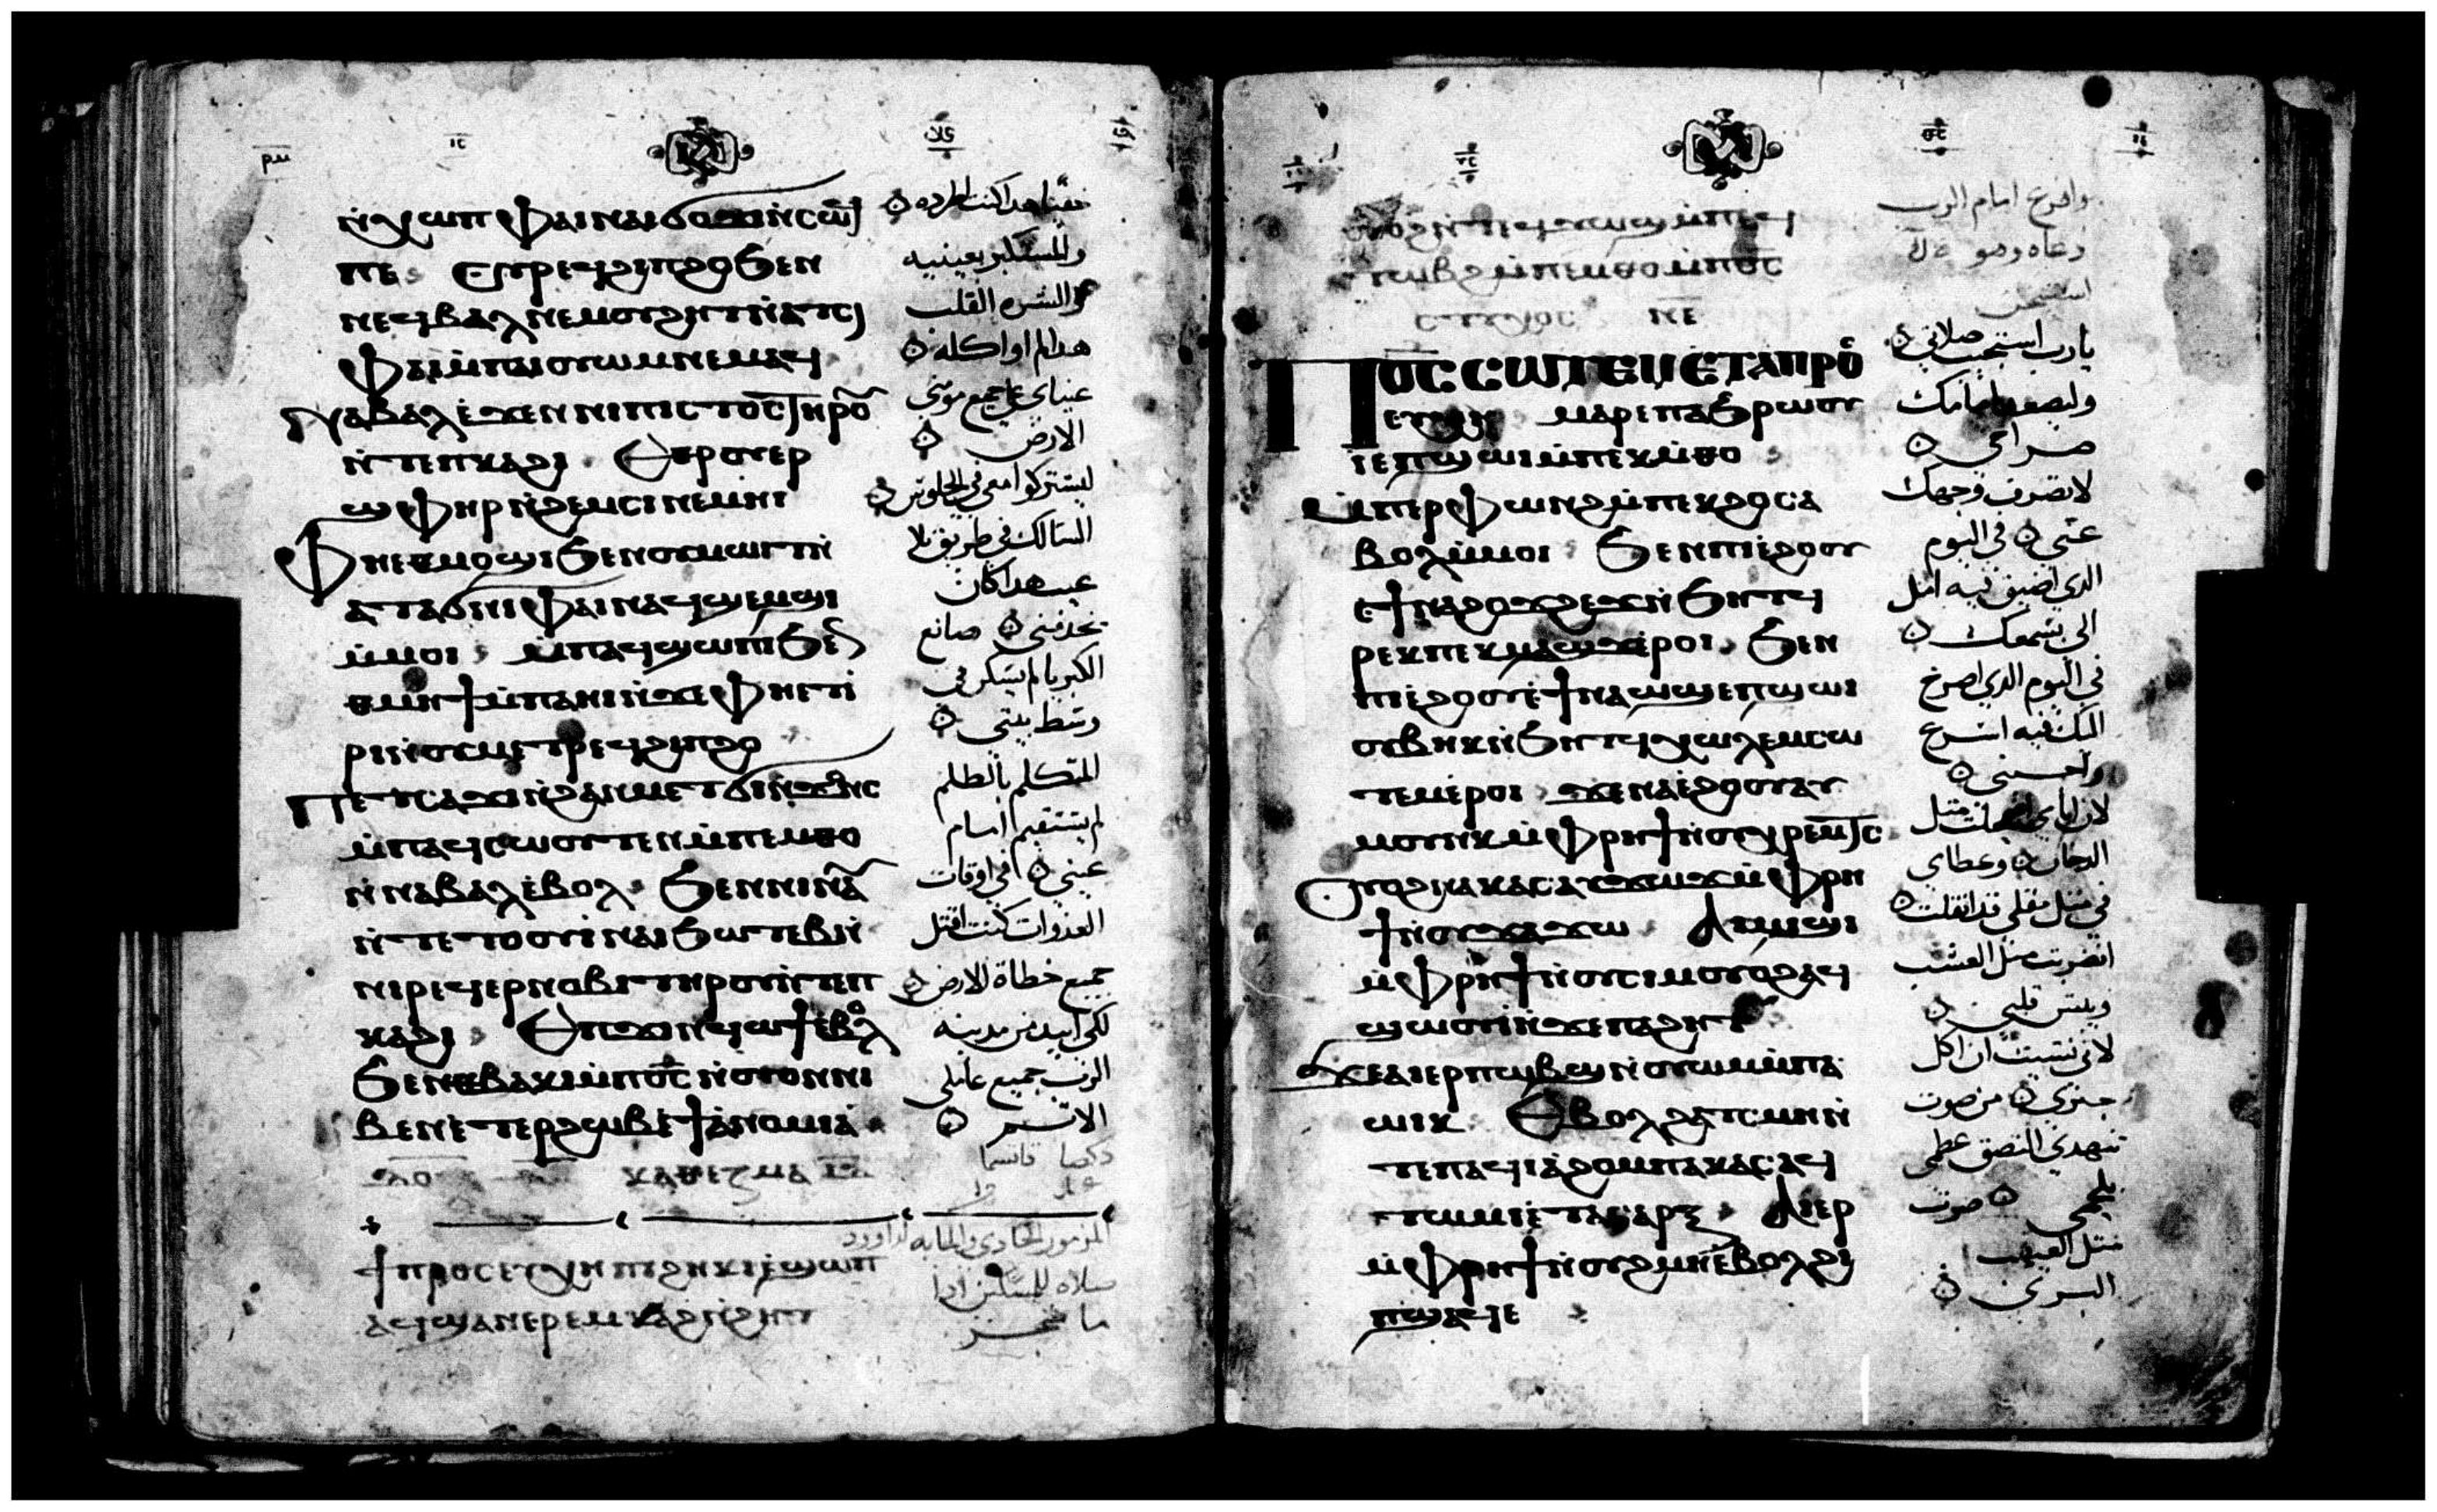 ⲛ̀ⲭⲱⲡ Ⲫⲁⲓ ⲛⲁⲓϭⲟϫⲓ ⲛ̀ⲥⲱϥ
ⲡⲉ Ⲉⲩⲣⲉϥϭⲓⲡϩⲟ ϧⲉⲛ
ⲛⲉϥⲃⲁⲗ ⲛⲉⲙ ⲟⲩϩⲏⲧ ⲛ̀ⲁⲧⲥⲓ
Ⲫⲁⲓ ⲙ̀ⲡⲁⲓⲟⲩⲱⲙ ⲛⲉⲙⲁϥ
Ⲛⲁⲃⲁⲗ ⲉ̀ϫⲉⲛ ⲛⲓⲡⲓⲥⲧⲟⲥ ⲧⲏⲣⲟⲩ
ⲛ̀ⲧⲉ ⲡⲕⲁϩⲓ Ⲉⲑⲣⲟⲩⲉⲣ
ϣⲫⲏⲣ ⲛ̀ϩⲉⲙⲥⲓ ⲛⲉⲙⲏⲓ
Ⲫⲏ ⲉⲑⲙⲟϣⲓ ϧⲉⲛ ⲟⲩⲙⲱⲓⲧ ⲛ̀
ⲁⲧⲁϭⲛⲓ ⲫⲁⲓ ⲛⲁϥϣⲉⲙϣⲓ
ⲙ̀ⲙⲟⲓ ⲙ̀ⲡⲁϥϣⲱⲡⲓ ϧⲉⲛ
ⲑⲙⲏϯ ⲙ̀ⲡⲁⲏⲓ ⲛ̀ϫⲉ ⲫⲏ ⲉⲧⲓ̀
ⲣⲓ ⲛ̀ⲟⲩⲙⲉⲧⲣⲉϥϭⲓⲡϩⲟ
Ⲡⲉⲧⲥⲁϫⲓ ⲛ̀ϩⲁⲛⲙⲉⲧϭⲓⲛϫⲟⲛⲥ
ⲙ̀ⲡⲁϥⲥⲱⲟⲩⲧⲉⲛ ⲙ̀ⲡⲉⲙⲑⲟ
ⲛ̀ⲛⲁⲃⲁⲗ ⲉ̀ⲃⲟⲗ ϧⲉⲛ ⲛⲓⲛⲁⲩ
ⲛ̀ⲧⲉ ⲧⲟⲟⲩⲓ̀ ⲛⲁⲓϧⲱⲧⲉⲃ ⲛ̀
ⲛⲓⲣⲉϥⲉⲣⲛⲟⲃⲓ ⲧⲏⲣⲟⲩ ⲛ̀ⲧⲉ ⲡ
ⲕⲁϩⲓ Ⲉⲡϫⲓⲛϥⲱϯ ⲉ̀ⲃⲟⲗ
ϧⲉⲛ ⲑⲃⲁⲕⲓ ⲙ̀ⲡⲟ̅ⲥ̅ ⲛ̀ⲟⲩⲟⲛ ⲛⲓ
ⲃⲉⲛ ⲉ̀ⲧⲉⲣϩⲱⲃ ⲉ̀ϯⲁ̀ⲛⲟⲙⲓⲁ̀
ⲕⲁⲑⲓⲍⲙⲁ
ϯⲡⲣⲟⲥⲉⲩⲭⲏ ⲡⲓϩⲏⲕⲓ ⲉ̀ϣⲱⲡ
ⲁϥϣⲁⲛⲉⲣⲉⲙⲕⲁϩ ⲛ̀ϩⲏⲧ
حقيا هدا كنت اطرده
والمستكبر بعينيه
والشره القلب
هدا لم اواكله
عيناي علي جميع مومني
الارض
ليشتركوا معي في الجلوس
السالك في طريق بلا
عيب هدا كان
يخدمني صانع
الكبريا لم يسكن في
وسط بيتي
المتكلم بالظلم
لم يستقيم امام
عيني في اوقات
الغدوات كنت اقتل
جميع خطاة الارض
لكي ابيد من مدينه
الرب جميع عاملي
الاثم
المزمور الحادي والمايه لداوود
صلاه للمسكين ادا
ما ضجر
ⲟⲩⲟϩ ⲛ̀ⲧⲉϥϫⲱϣ ⲙ̀ⲡⲉϥ
ⲧⲱⲃϩ ⲙ̀ⲡⲉⲙⲑⲟ ⲙ̀ⲡⲟ̅ⲥ̅
ⲥⲧⲓⲭⲟⲥ ⲛ̅ⲉ̅
Ⲡⲟ̅ⲥ̅ ⲥⲱⲧⲉⲙ ⲉ̀ⲧⲁⲡⲣⲟ̅
ⲥⲉⲩⲭⲏ ⲙⲁⲣⲉ ⲡⲁϧⲣⲱⲟⲩ
ⲓ̀ ⲉ̀ⲡϣⲱⲓ ⲙ̀ⲡⲉⲕⲙ̀ⲑⲟ
ⲙ̀ⲡⲉⲣⲫⲱⲛϩ ⲙ̀ⲡⲉⲕϩⲟ ⲥⲁ
ⲃⲟⲗ ⲙ̀ⲙⲟⲓ ϧⲉⲛ ⲡⲓⲉ̀ϩⲟⲟⲩ
ⲉ̀ϯⲛⲁϩⲟϫϩⲉϫ ⲛ̀ϧⲏⲧϥ
ⲣⲉⲕ ⲡⲉⲕⲙⲁϣϫ ⲉ̀ⲣⲟⲓ ϧⲉⲛ
ⲡⲓⲉ̀ϩⲟⲟⲩ ⲉ̀ϯⲛⲁⲱϣ ⲉ̀ⲡϣⲱⲓ
ⲟⲩⲃⲏⲕ ⲛ̀ϧⲏⲧϥ ⲭⲱⲗⲉⲙ ⲥⲱ
ⲧⲉⲙ ⲉ̀ⲣⲟⲓ ϫⲉ ⲛⲁⲉ̀ϩⲟⲟⲩ ⲁⲩ
ⲙⲟⲩⲛⲕ ⲙ̀ⲫⲣⲏϯ ⲛ̀ⲟⲩⲭⲣⲉⲙⲧⲥ
ⲟⲩⲟϩ ⲛⲁⲕⲁⲥ ⲁⲩϫⲱϫ ⲙ̀ⲫⲣⲏ
ϯ ⲛ̀ⲟⲩϫⲁϫⲱ Ⲁⲩϣⲓ
ⲙ̀ⲫⲣⲏϯ ⲛ̀ⲟⲩⲥⲓⲙ ⲟⲩⲟϩ ⲁϥ
ϣⲱⲟⲩⲓ̀ ⲛ̀ϫⲉ ⲡⲁϩⲏⲧ
Ϫⲉ ⲁⲓⲉⲣⲡⲱⲃϣ ⲛ̀ⲟⲩⲱⲙ ⲙ̀ⲡⲁ
ⲱⲓⲕ Ⲉⲃⲟⲗϩⲁ ⲧⲥⲙⲏ ⲛ̀
ⲧⲉ ⲡⲁϥⲓⲁ̀ϩⲟⲙ ⲡⲁⲕⲁⲥ ⲁϥ
ⲧⲱⲙⲓ ⲉ̀ⲧⲁⲥⲁⲣⲝ Ⲁⲓⲉⲣ
ⲙ̀ⲫⲣⲏϯ ⲛ̀ⲟⲩϩⲙⲏ ⲉ̀ⲃⲟⲗϩⲓ
ⲡϣⲁϥⲉ
وافرغ امام الرب
دعاه وهو
يارب استجب صلاتي
وليصعد امامك
صراخي
لا تصرف وجهك
عني في اليوم
الدي اضيق فيه امل
الي سمعك
في اليوم الدي اصرخ
اليك فيه اسرع
واجبني
لان ايامي اضمحلت مثل
الدخان وعظامي
في مثل مقلي قد انقلت
انضربت مثل العشب
ويبس قلبي
لاني نسيت ان اكل
خبزي من صوت
تنهدي التصق عظمي
بلحمي صرت
مثل العيهب
البري